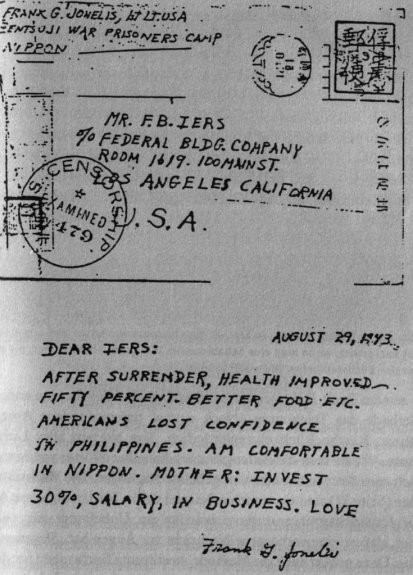 FRANK G. JONELIS, 1st LT. USA
ZENTSUJI WAR PRISONERS CAMP
NIPPON
MR. F.B. IERS
% FEDERAL BLDG. COMPANY
ROOM 1619. 100 MAIN ST.
LOS ANGELES CALIFORNIA
U.S.A.
U.S. CENSORSHIP
EXAMINED
429
AUGUST 29, 1943
DEAR IERS:
AFTER SURRENDER, HEALTH IMPROVED
FIFTY PERCENT. BETTER FOOD ETC.
AMERICANS LOST CONFIDENCE
IN PHILIPPINES. AM COMFORTABLE
IN NIPPON. MOTHER: INVEST
30%, SALARY, IN BUSINESS. LOVE
Frank G. Jonelis